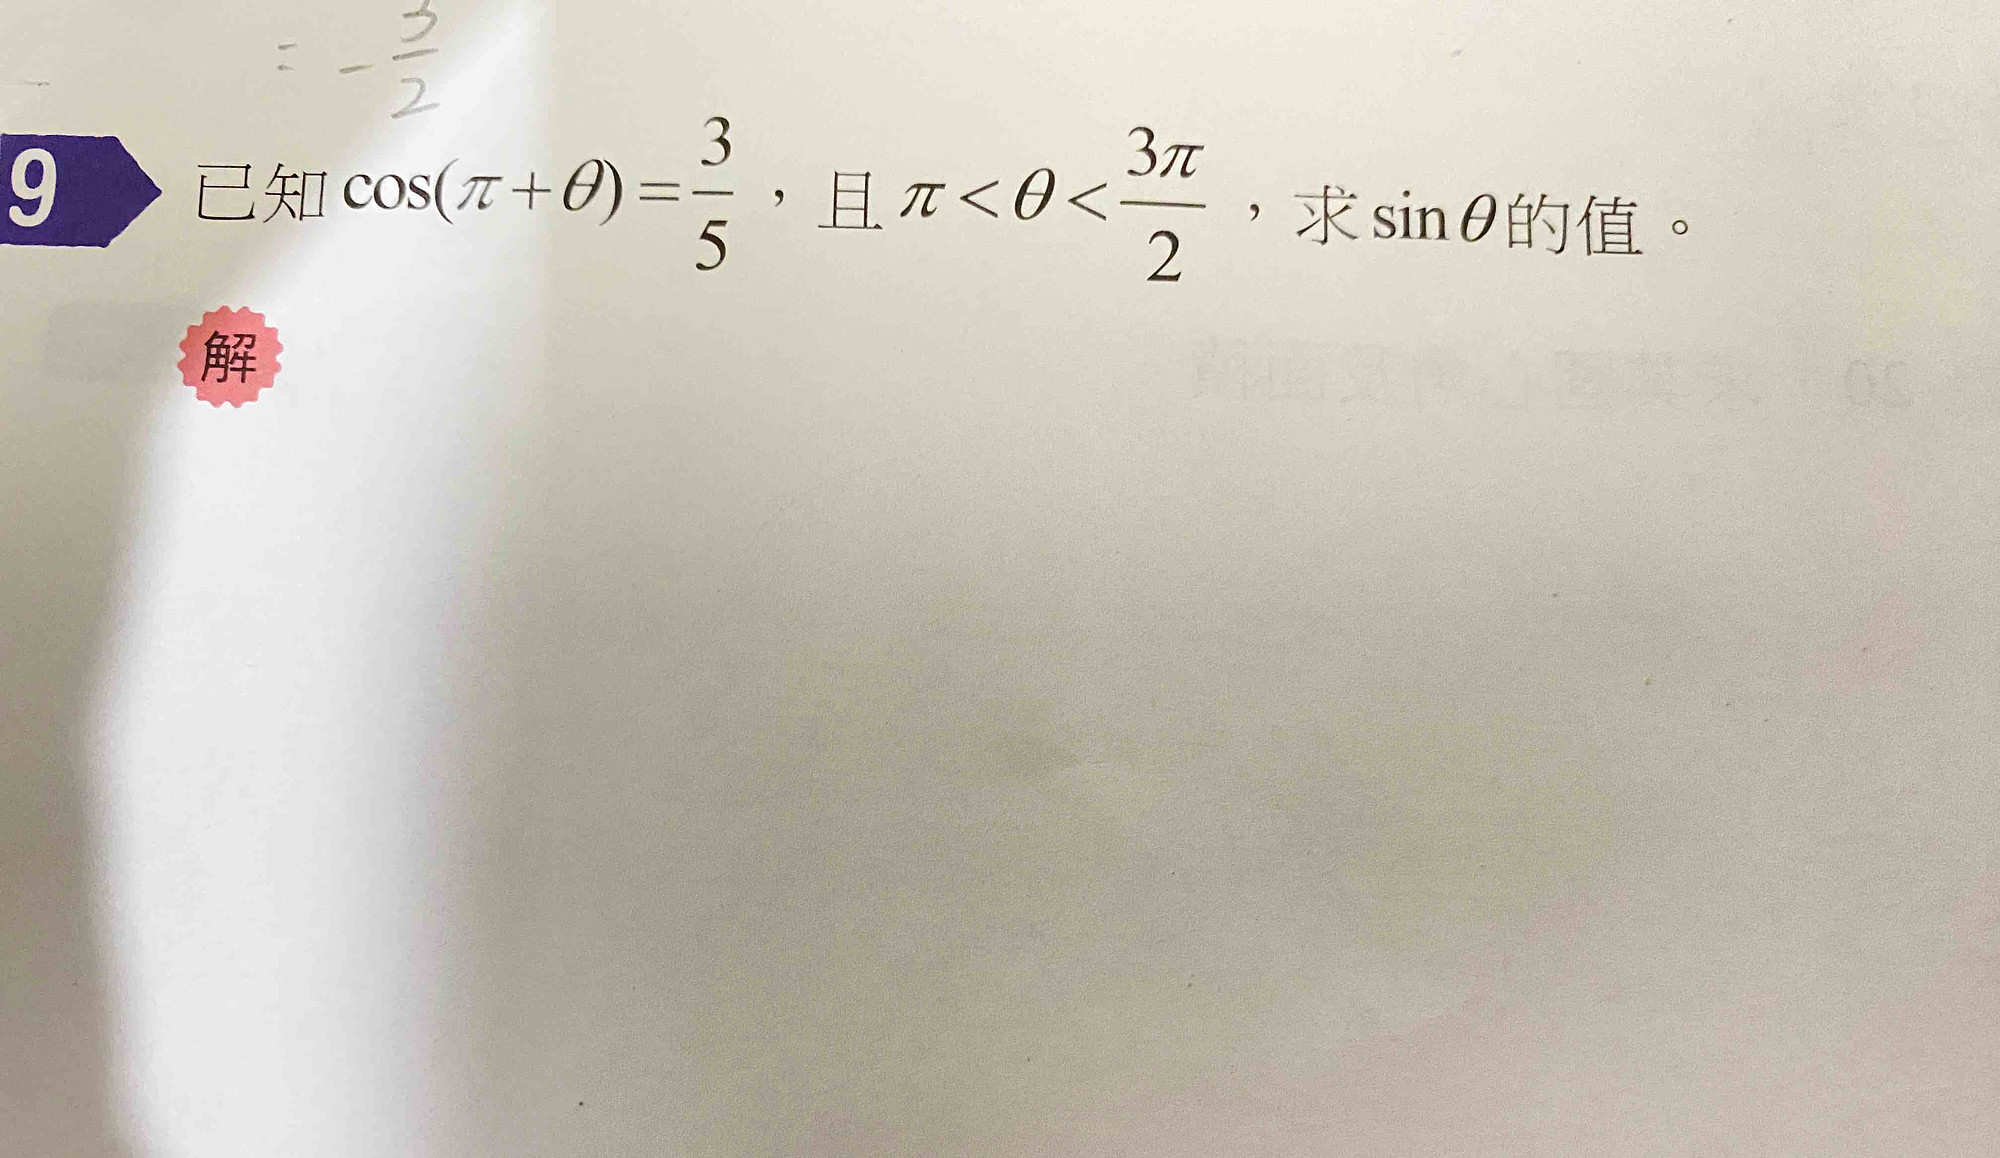 = - 3/2
9 已知cos(π+θ)=3/5，且π<θ<3π/2，求sinθ的值。
解
20